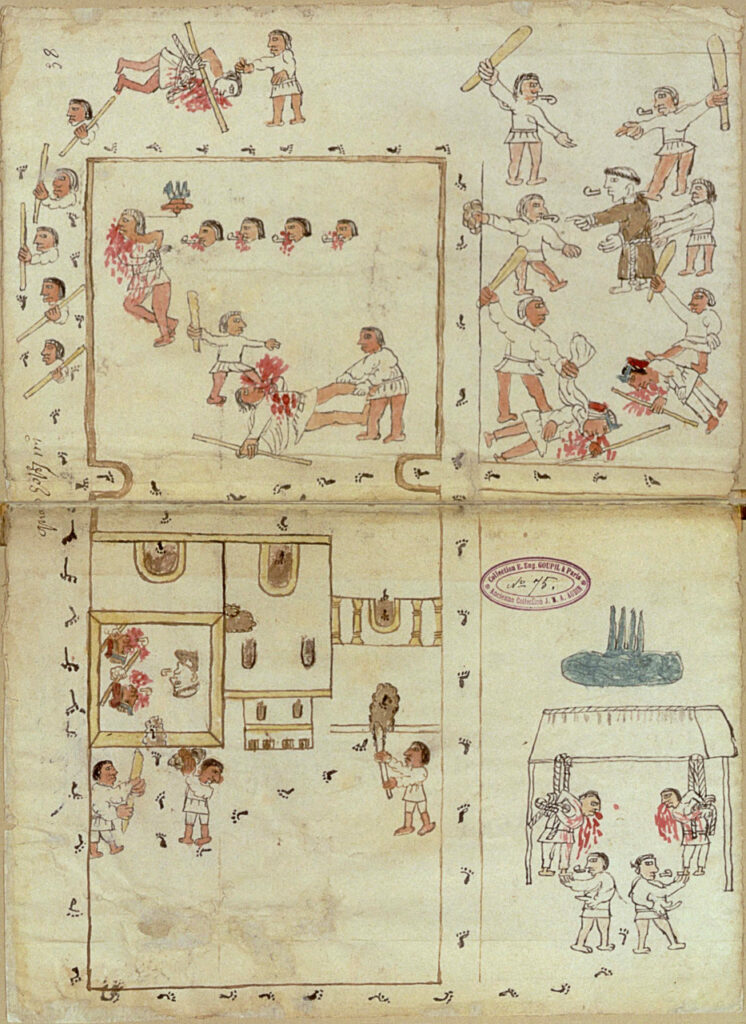 38
Collection E. Eug. GOUPIL à Paris
No 75.
Ancienne Collection J. M. A. AUBIN